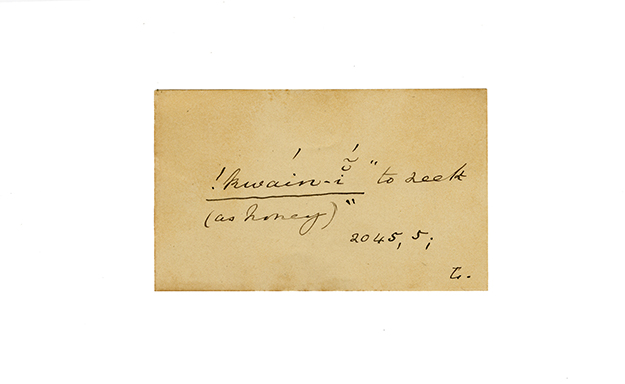 !kwáin-ĩ́ "to seek
(as honey)"
2045, 5;
T.